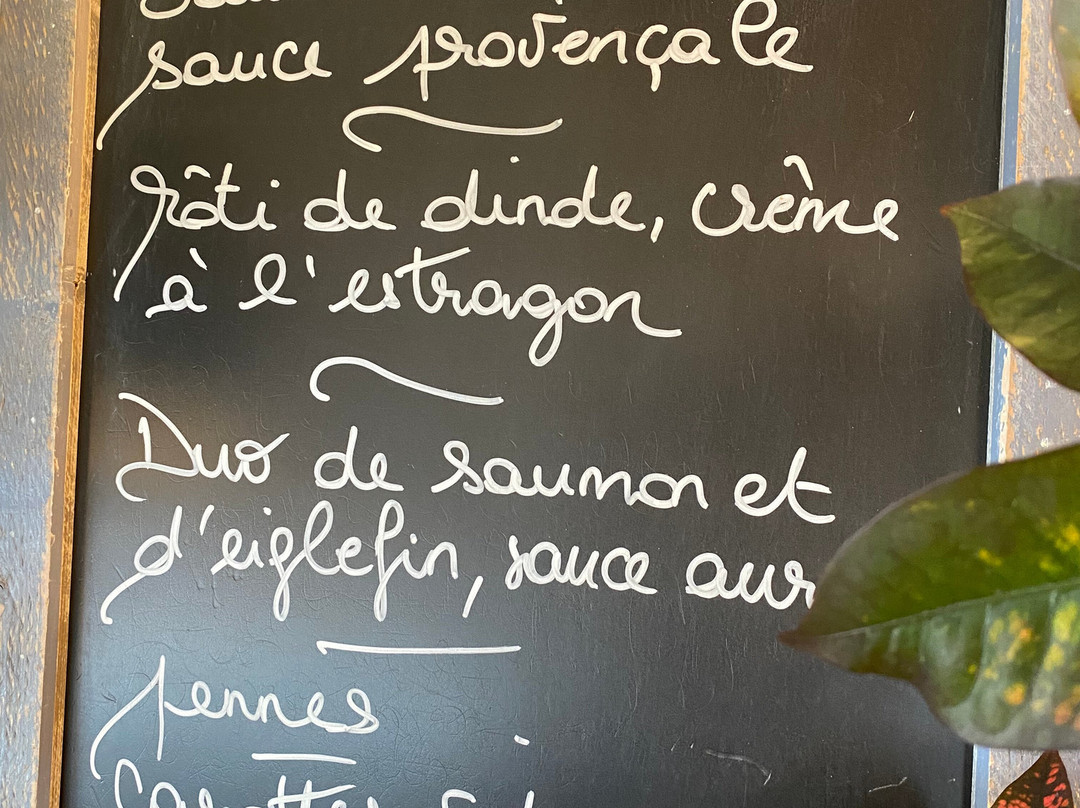 sauce provençale
rôti de dinde, crème
à l'estragon
Duo de saumon et
d'eiglefin, sauce
pennes